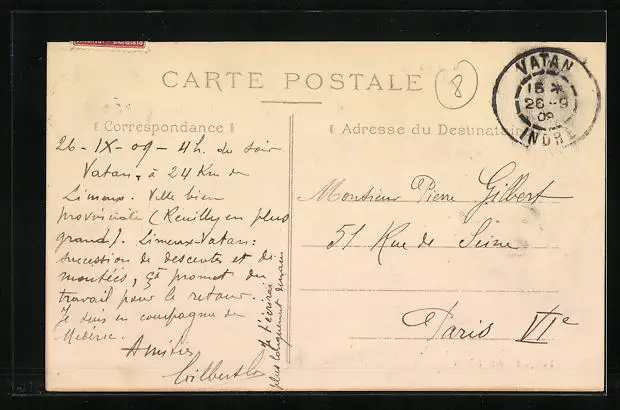 CARTE POSTALE
8
VATAN
15 *
26 - 9
09
INDRE
Correspondance
Adresse du Destinataire
26 - IX - 09 - 4h. du soir
Vatan, à 24 Km de
Limeux. Ville bien
provinciale (Reuilly en plus
grand). Limeux-Vatan:
succession de descentes et de
montées, ça promet du
travail pour le retour.
Je suis en compagnie de
Amitiés
Je t'écrirai
plus longuement demain
Monsieur Pierre Gilbert
51 Rue de Seine
Paris VIe